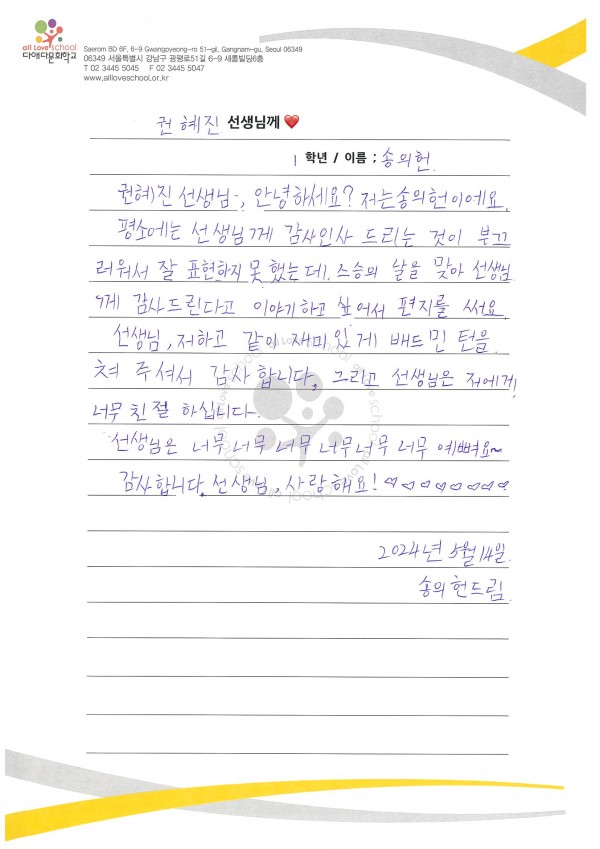 all Love school
다애다문화학교
Saerom BD 6F, 6-9 Gwangpyeong-ro 51-gil, Gangnam-gu, Seoul 06349
06349 서울특별시 강남구 광평로51길 6-9 새롬빌딩6층
T 02 3445 5045 F 02 3445 5047
www.alloveschool.or.kr
권혜진 선생님께 ❤
1 학년 / 이름 ; 송의헌.
권혜진 선생님~, 안녕하세요? 저는 송의헌이에요.
평소에는 선생님께 감사인사 드리는 것이 부끄
러워서 잘 표현하지 못 했는데, 스승의 날을 맞아 선생님
께 감사드린다고 이야기하고 싶어서 편지를 써요.
선생님, 저하고 같이 재미있게 배드민턴을
쳐 주셔서 감사합니다. 그리고 선생님은 저에게
너무 친절 하십니다.
선생님은 너무 너무 너무 너무 너무 너무 예뻐요~
감사합니다. 선생님, 사랑해요! ♡♡♡♡♡♡♡
2024년 5월 14일.
송의헌드림.